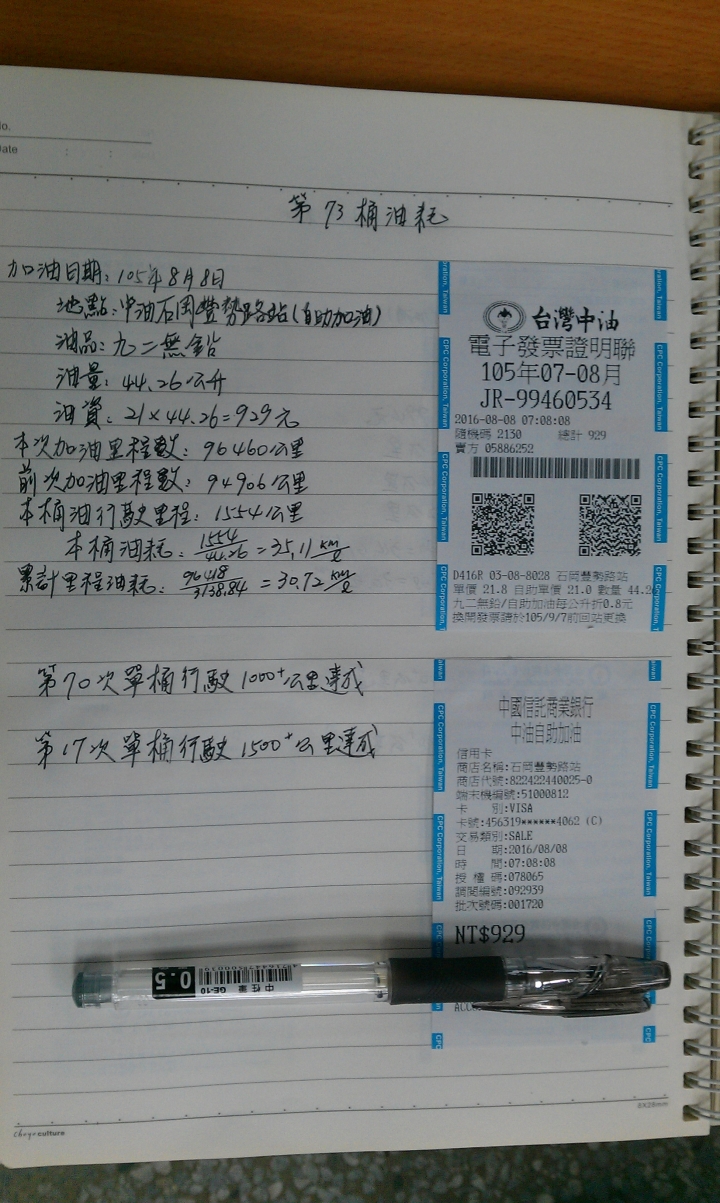 No.
Date : :
第 73 桶油耗
加油日期：105年8月8日
地點：中油石岡豐勢路站(自助加油)
油品：九二無鉛
油量：44.26公升
油資：21×44.26=929元
本次加油里程數：96460公里
前次加油里程數：94906公里
本桶油行駛里程：1554公里
本桶油耗：1554/44.26=35.11 km/ℓ
累計里程油耗：96418/3138.84=30.72 km/ℓ
第70次單桶行駛1000⁺公里達成
第17次單桶行駛1500⁺公里達成
台灣中油
電子發票證明聯
105年07-08月
JR-99460534
2016-08-08 07:08:08
隨機碼 2130 總計 929
賣方 05886252
D416R 03-08-8028 石岡豐勢路站
單價 21.8 自助單價 21.0 數量 44.2
九二無鉛/自助加油每公升折0.8元
換開發票請於105/9/7前回站更換
中國信託商業銀行
中油自助加油
信用卡
商店名稱:石岡豐勢路站
商店代號:822422440025-0
端末機編號:51000812
卡 別:VISA
卡號:456319******4062 (C)
交易類別:SALE
日 期:2016/08/08
時 間:07:08:08
授權碼:078065
調閱編號:092939
批次號碼:001720
NT$929
CPC Corporation, Taiwan
0.5
中性筆 GE-10
culture
8X26mm